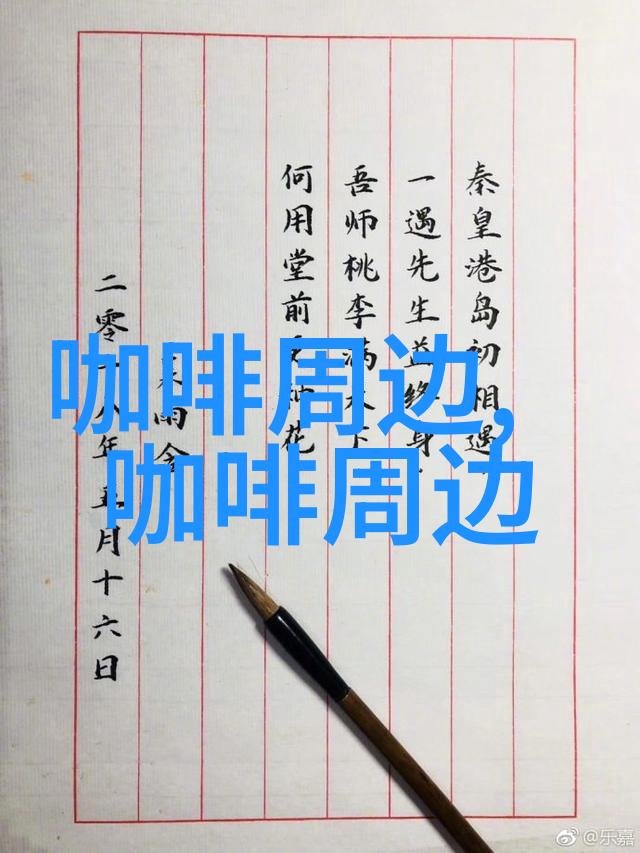 秦皇港岛初相遇
一遇先生益终身
吾师桃李满天下
何用堂前更种花
雨金
二零一八年五月十六日
咖啡周边,
咖啡周边
@乐嘉